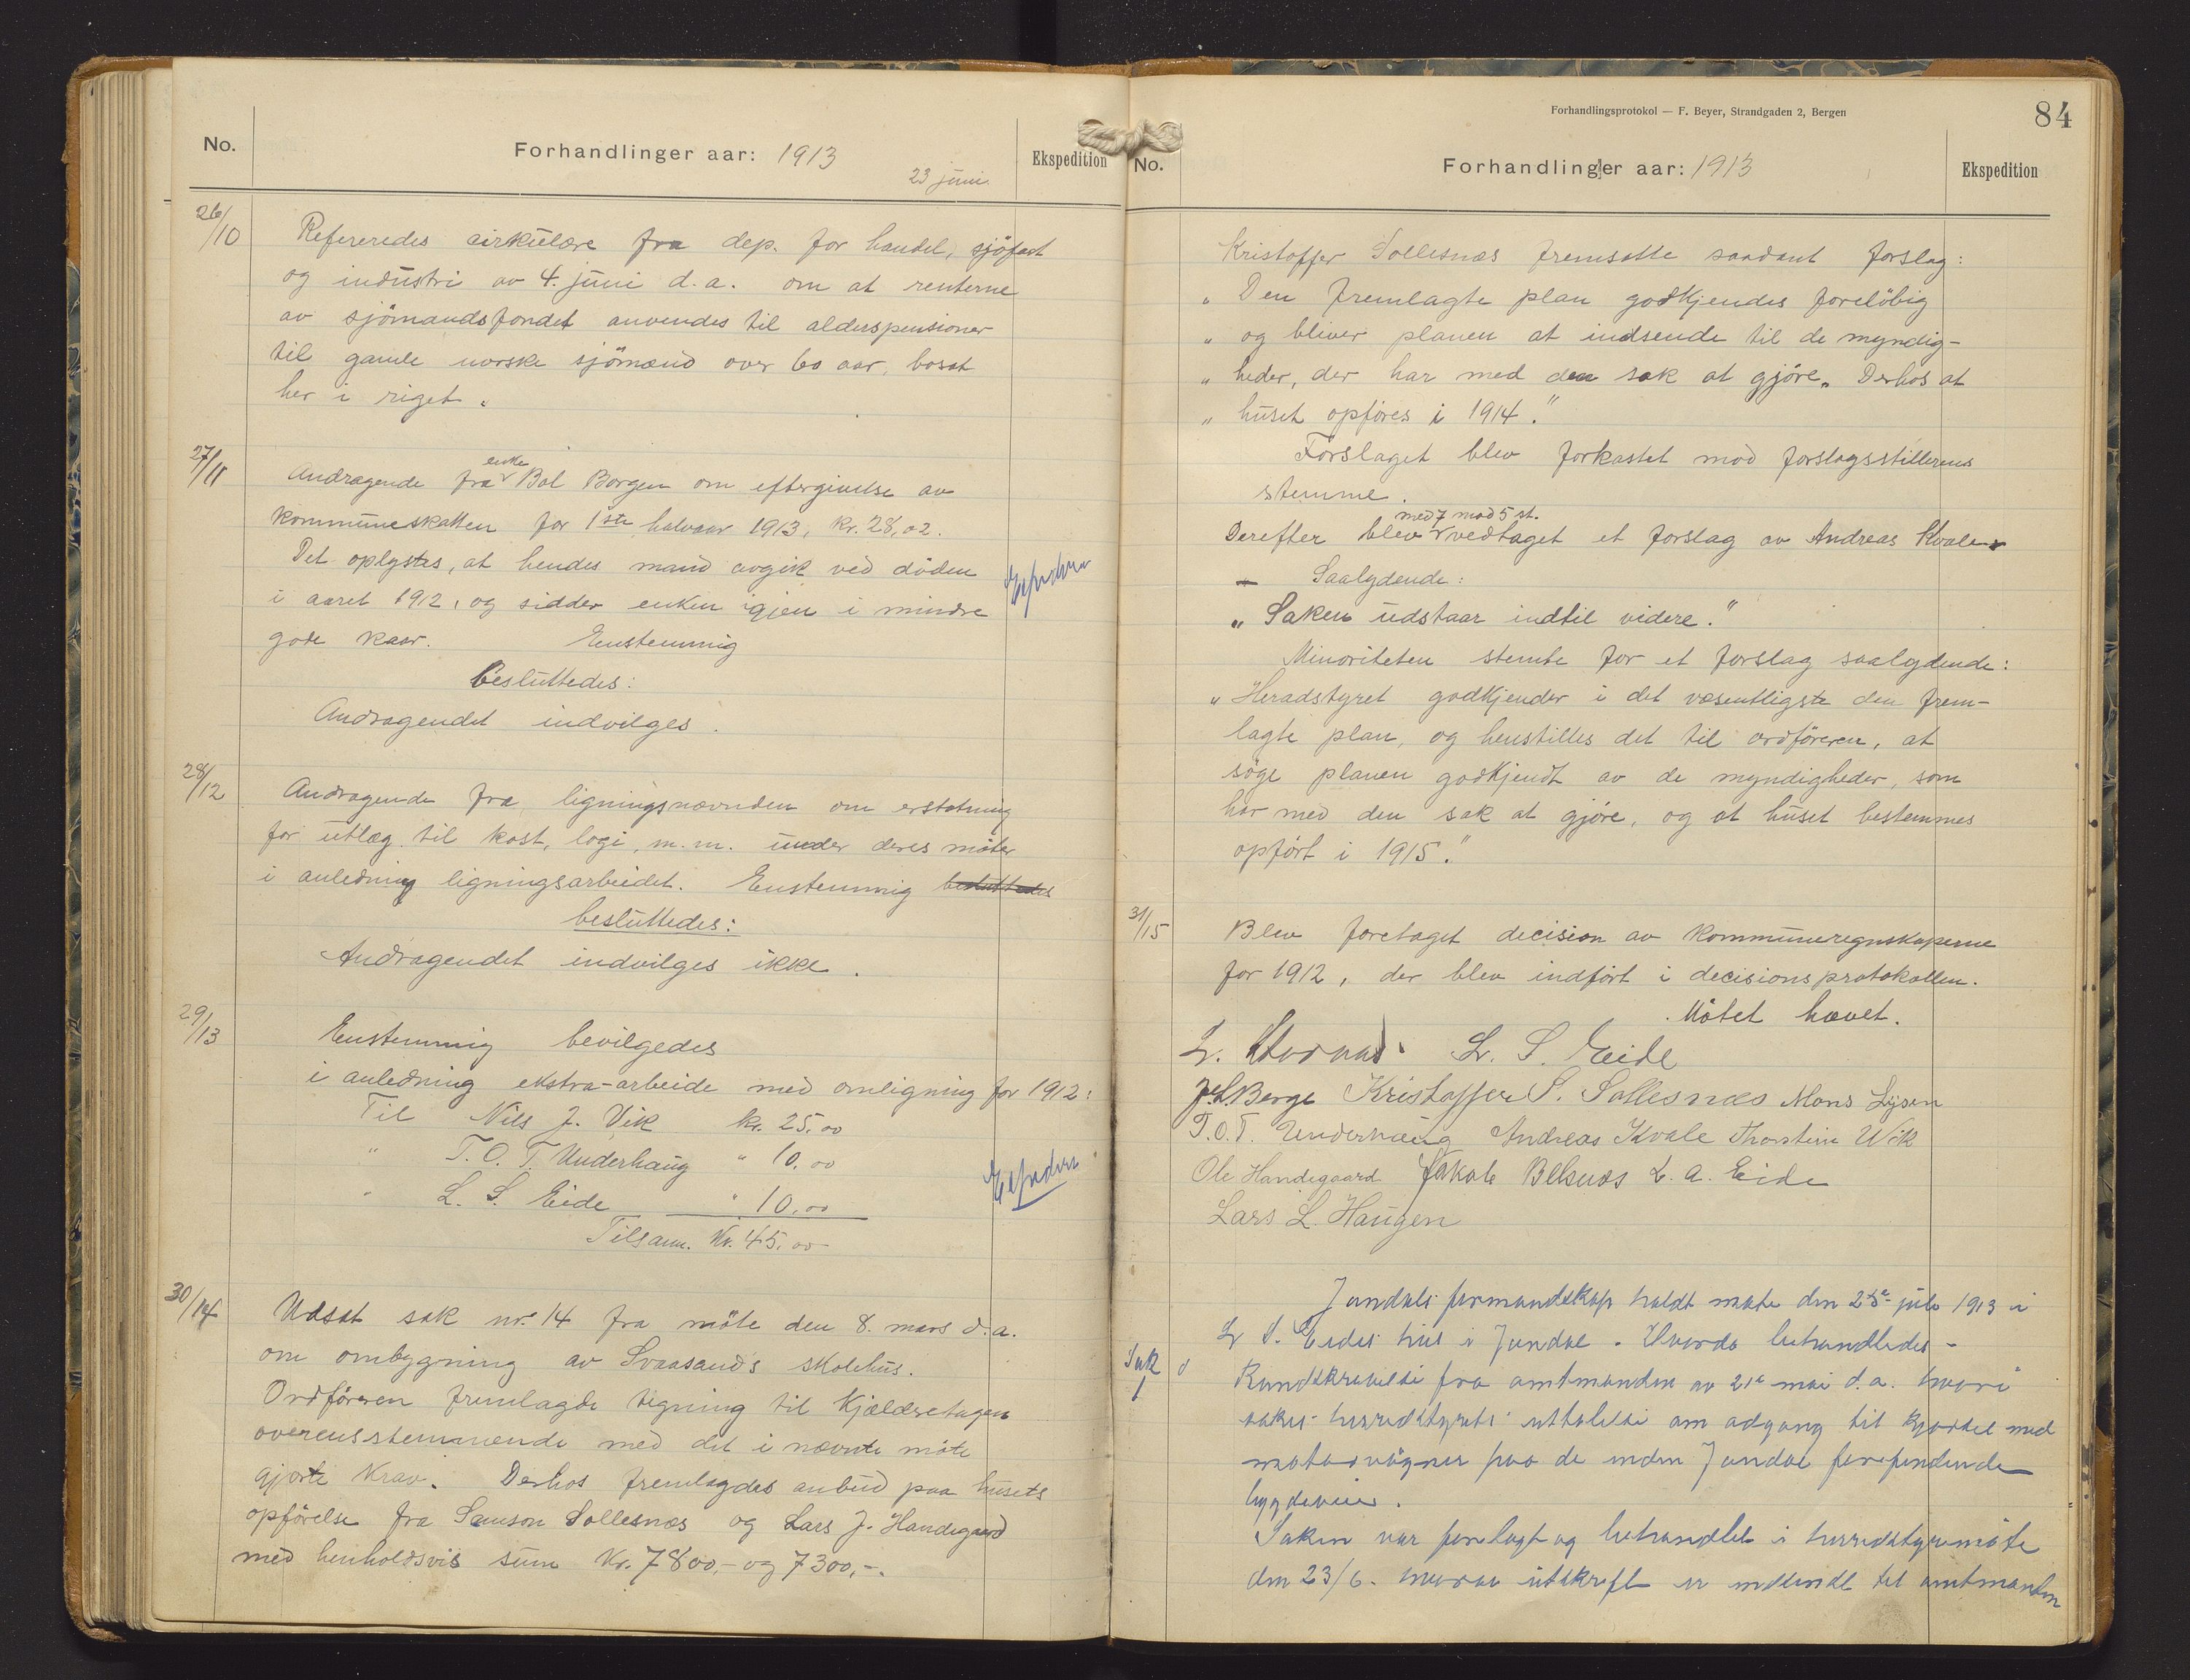 No.
Forhandlinger aar: 1913
23 juni.
Ekspedition
26/10
Refereredes cirkulære fra dep. for handel, sjöfart
og industri av 4. juni d.a. om at renterne
av sjömandsfondet anvendes til alderspensioner
til gamle norske sjömænd over 60 aar, bosat
her i riget.
27/11
enke
Andragende fra Bol Borgen om eftergivelse av
kommuneskatten for 1ste halvaar 1913, kr. 28,02.
Det oplystes, at hendes mand avgik ved döden
i aaret 1912, og sidder enken igjen i mindre
gode kaar. Enstemmig
besluttedes:
Andragendet indvilges.
28/12
Andragende fra ligningsnævnden om erstatning
for utlæg til kost, logi, m.m. under deres möter
i anledning ligningsarbeidet. Enstemmig besluttedes
besluttedes:
Andragendet indvilges ikke.
29/13
Enstemmig bevilgedes
i anledning ekstra-arbeide med omligning for 1912:
Til Nils J. Vik kr. 25,00
" T. O. T. Underhaug " 10,00
" L. S. Eide " 10,00
Tilsam. Kr. 45,00
30/14
Udsat sak nr. 14 fra möte den 8. mars d.a.
om ombygning av Svaasands skolehus.
Ordföreren fremlagde tegning til kjælderetagen
overensstemmende med det i nævnte möte
gjorte krav. Derhos fremlagdes anbud paa husets
opförelse fra Samson Sollesnæs og Lars J. Handegaard
med henholdsvis sum Kr. 7800,- og 7300,-.
Forhandlingsprotokol — F. Beyer, Strandgaden 2, Bergen
84
No.
Forhandlinger aar: 1913
Ekspedition
Kristoffer Sollesnæs fremsatte saadant forslag:
„ Den fremlagte plan godkjendes foreløbig
„ og bliver planen at indsende til de myndig-
„ heder, der har med den sak at gjöre. Derhos at
„ huset opföres i 1914."
Forslaget blev forkastet mod forslagsstillerens
stemme.
med 7 mod 5 st.
Derefter blev vedtaget et forslag av Andreas Kvale
- Saalydende:
„ Saken udstaar indtil videre."
Minoriteten stemte for et forslag saalydende:
„ Heradstyret godkjender i det væsentligste den frem-
lagte plan, og henstilles det til ordföreren, at
söge planen godkjendt av de myndigheder, som
har med den sak at gjöre, og at huset bestemmes
opfört i 1915."
31/15
Blev foretaget decision av kommuneregnskaperne
for 1912, der blev indfört i decisionsprotokollen.
Mötet hævet.
L. S. Eide
Berge Kristoffer S. Sollesnæs Mons Lysen
T.O.T. Underhaug Andreas Kvale Thorstein Wik
Ole Handegaard Jakob Belsnæs L. A. Eide
Lars L. Haugen
Jondals formandskap holdt møte den 25de juli 1913 i
L S. Eides hus i Jondal. Hvorda behandledes -
Sak 1
Rundskrivelse fra amtmanden av 21e mai d.a. hvori
søkes herredstyrets uttalelse om adgang til kjørsel med
motorvögner paa de inden Jondal forefindende
bygdeveier.
Saken var forelagt og behandlet i herredstyremöte
den 23/6. hvorav utskrift er indsendt til amtmanden